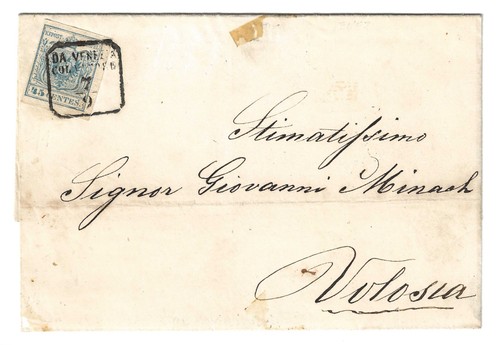 DA VENEZIA
COL VAPORE
7
9
45 CENTES.
Stimatissimo
Signor Giovanni Minach
Volosca